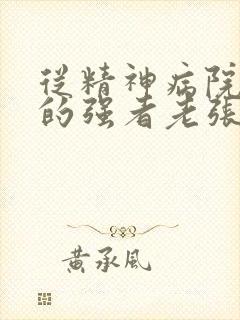 從精神病院
的强者老張
黃承風